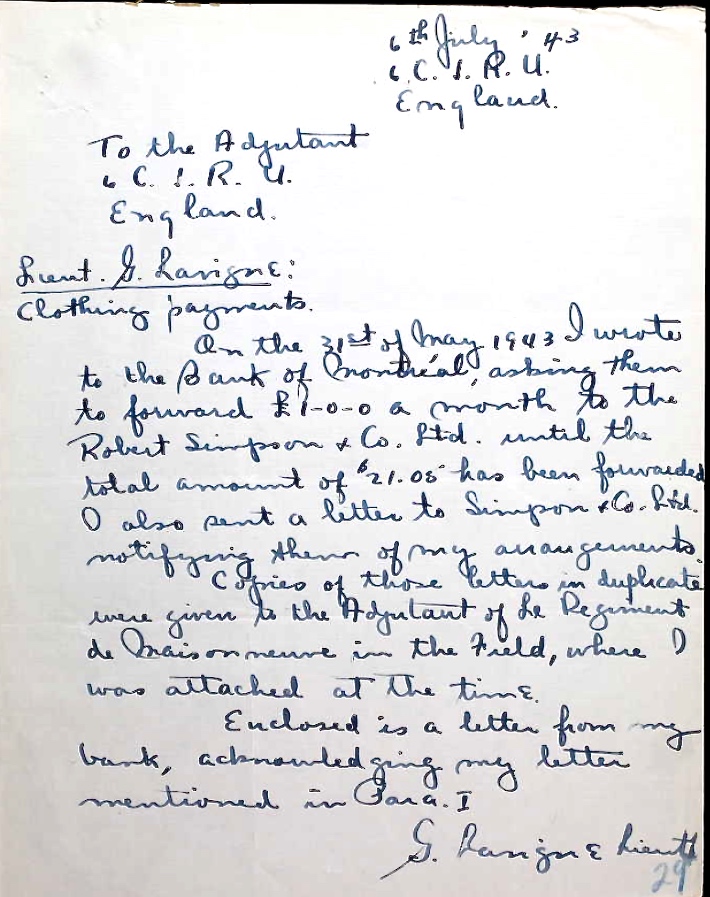 6th July '43
6 C. I. R. U.
England.
To the Adjutant
6 C. I. R. U.
England.
Lieut. G. Lavigne:
Clothing payments.
On the 31st of May 1943 I wrote
to the Bank of Montréal, asking them
to forward £1-0-0 a month to the
Robert Simpson & Co. Ltd. until the
total amount of $21.05 has been forwarded
I also sent a letter to Simpson & Co. Ltd.
notifying them of my arrangements.
Copies of those letters in duplicate
were given to the Adjutant of Le Regiment
de Maisonneuve in the Field, where I
was attached at the time.
Enclosed is a letter from my
bank, acknowledging my letter
mentioned in Para. I
G. Lavigne Lieut
29